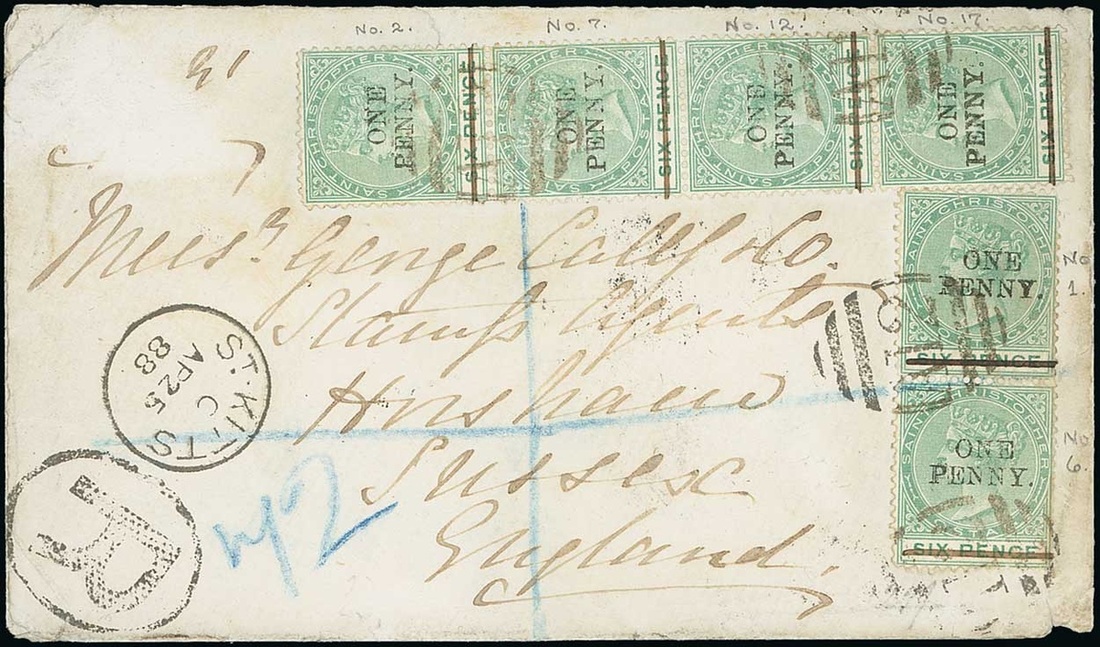 No. 2.
No. 7.
No. 12.
No. 17.
SAINT CHRISTOPHER POSTAGE
ONE
PENNY.
SIX PENCE
SAINT CHRISTOPHER POSTAGE
ONE
PENNY.
SIX PENCE
SAINT CHRISTOPHER POSTAGE
ONE
PENNY.
SIX PENCE
SAINT CHRISTOPHER POSTAGE
ONE
PENNY.
SIX PENCE
SAINT CHRISTOPHER
ONE
PENNY.
SIX PENCE
No
1.
SAINT CHRISTOPHER
ONE
PENNY.
SIX PENCE
No
6.
Messrs George Calif & Co.
Stamp Agents
Horsham
Sussex
England.
ST. KITTS
C
AP 25
88
R
A12